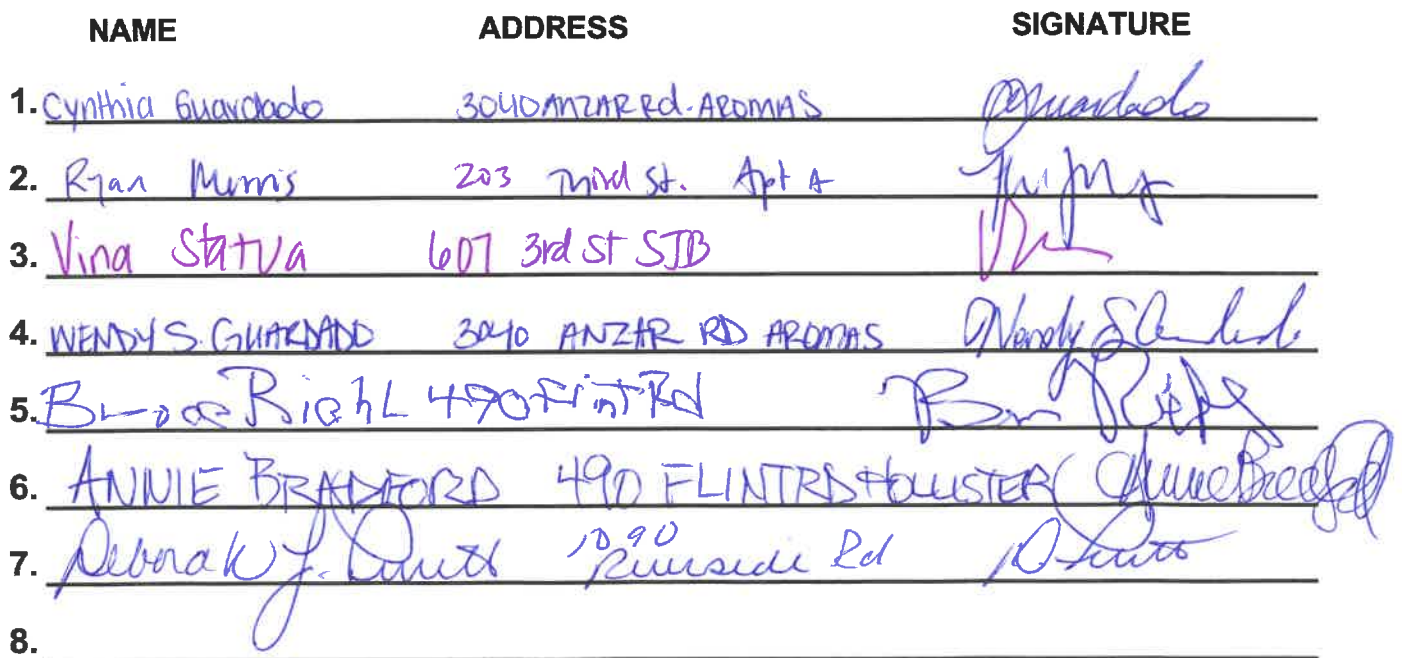 NAME ADDRESS SIGNATURE
1. Cynthia Guardado 3040 ANZAR Rd. AROMAS Guardado
2. Ryan 203 Third St. Apt A
3. Vina Statva 607 3rd St SJB
4. WENDY S. GUARDADO 3040 ANZAR RD AROMAS Wendy S
5. Riehl 490 Flint Rd
6. ANNIE BRADFORD 490 FLINT RD HOLLISTER Annie Bradford
7. Deborah J. 1090 Riverside Rd
8.